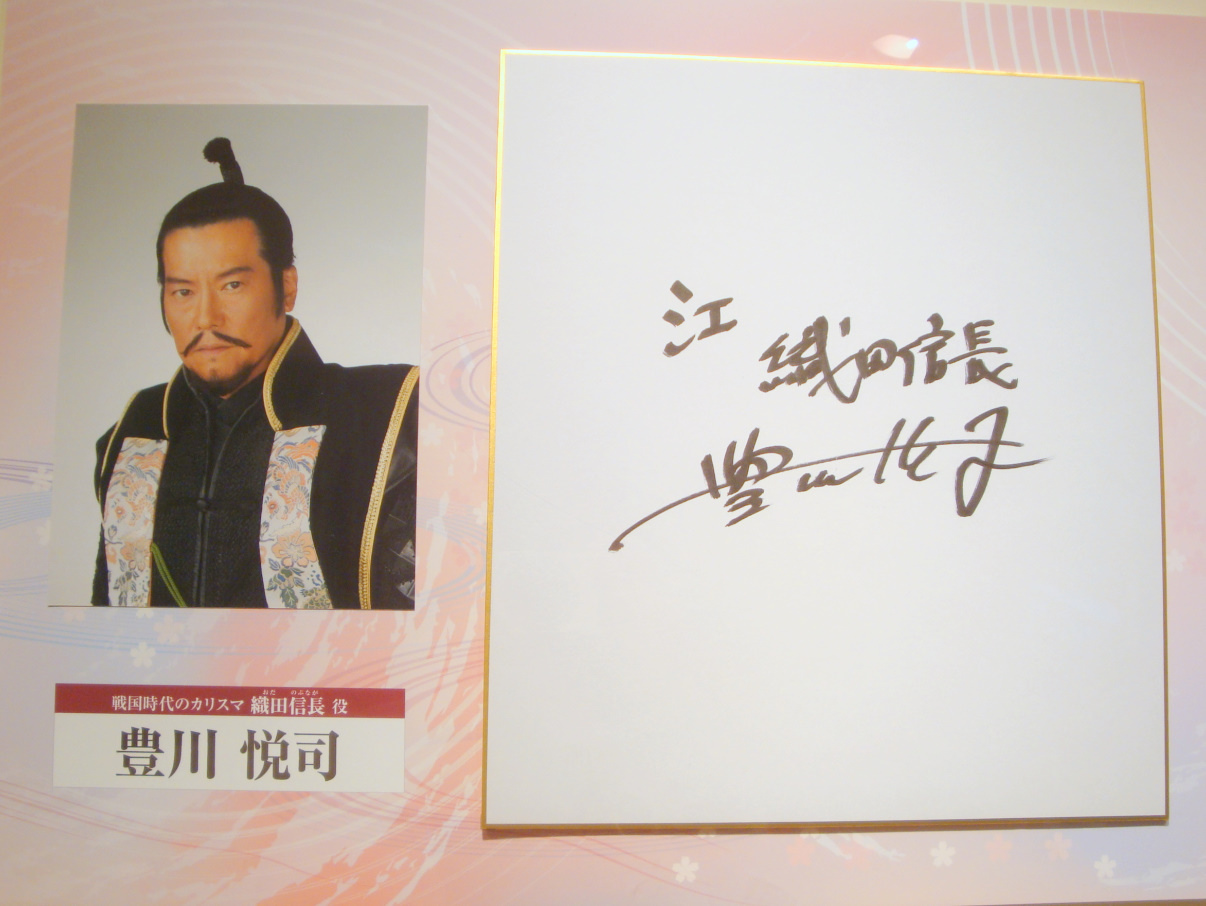 おだ のぶなが
戦国時代のカリスマ 織田信長 役
豊川 悦司
江
織田信長
豊川悦司